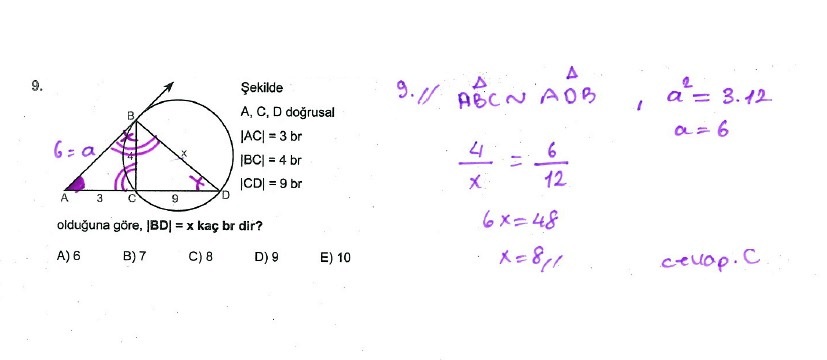 9.
Şekilde
A, C, D doğrusal
|AC| = 3 br
|BC| = 4 br
|CD| = 9 br
B
6 = a
x
4
x
x
A
3
C
9
D
olduğuna göre, |BD| = x kaç br dir?
A) 6 B) 7 C) 8 D) 9 E) 10
9.// ABC ~ ADB , a² = 3.12
a = 6
4/x = 6/12
6x = 48
x = 8//
cevap. C